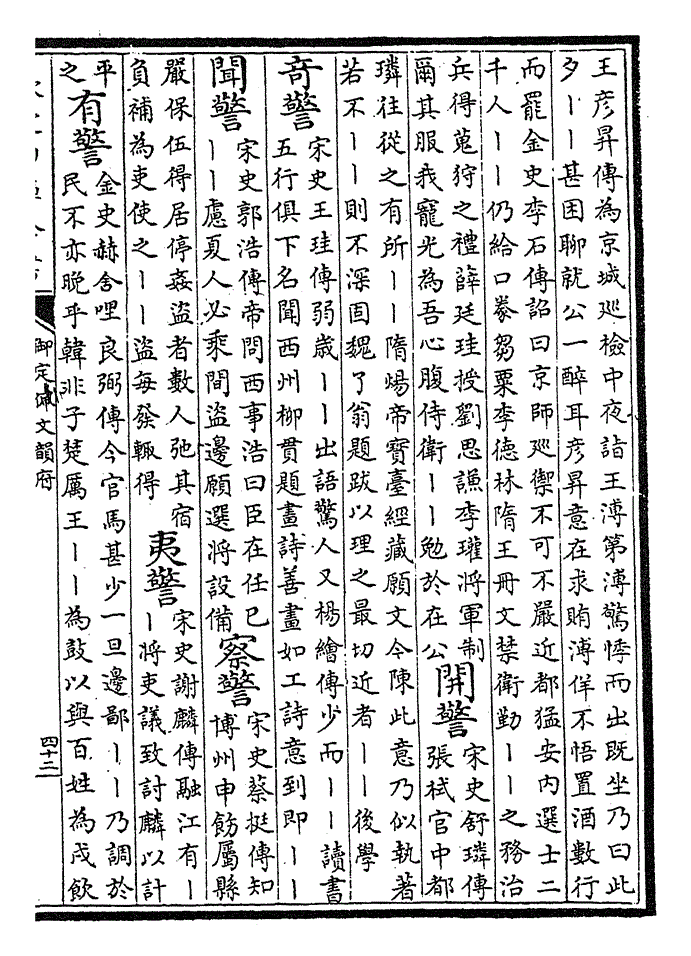 王彥昇傳為京城巡檢中夜詣王溥第溥驚悸而出既坐乃曰此
夕丨丨甚困聊就公一醉耳彥昇意在求賄溥佯不悟置酒數行
而罷金史李石傳詔曰京師巡禦不可不嚴近都猛安內選士二
千人丨丨仍給口券芻粟李德林隋王冊文禁衛勤丨丨之務治
兵得蒐狩之禮薛廷珪授劉思謙李瓘將軍制
爾其服我寵光為吾心腹侍衛丨丨勉於在公
開警
宋史舒璘傳
張栻官中都
璘往從之有所丨丨隋煬帝寶臺經藏願文今陳此意乃似執著
若不丨丨則不深固魏了翁題跋以理之最切近者丨丨後學
奇警
宋史王珪傳弱歲丨丨出語驚人又楊繪傳少而丨丨讀書
五行俱下名聞西州柳貫題畫詩善畫如工詩意到即丨丨
聞警
宋史郭浩傳帝問西事浩曰臣在任已
丨丨慮夏人必乘間盜邊願選將設備
察警
宋史蔡挺傳知
博州申飭屬縣
嚴保伍得居停姦盜者數人弛其宿
負補為吏使之丨丨盜每發輒得
夷警
宋史謝麟傳融江有丨
丨將吏議致討麟以計
平
之
有警
金史赫舍哩良弼傳今官馬甚少一旦邊鄙丨丨乃調於
民不亦晚乎韓非子楚厲王丨丨為鼓以與百姓為戍飲
御定佩文韻府
四十二